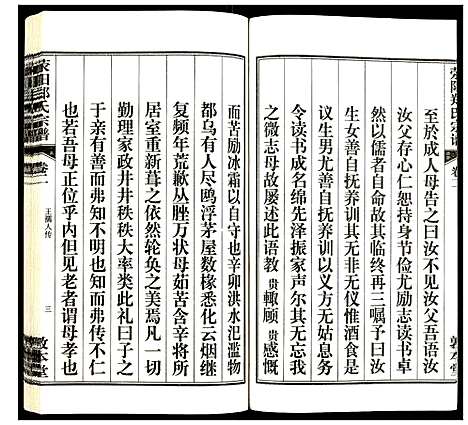 至於成人母告之曰汝不见汝父吾语汝
汝父存心仁恕持身节俭尤励志读书卓
然以儒者自命其临终再三嘱予曰汝
善安贫善抚养训其无非无仪惟酒食是
议生男尤善抚养训以义方无姑息务
令读书成名绵先泽振家声尔其无忘我
之微志母故屡述此语教贵輙顾贵感慨
而苦励冰霜以自守辛卯洪水汜滥物
都乌有人尽鸥浮茅屋数椽悉化云烟继
复频年荒歉从胜万状母茹苦含辛将所
居室重新葺之依然轮奂之美焉凡一切
勤理家政井井秩秩大率类此礼曰子之
于亲有善而弗知不明也知而弗传不仁
也若吾母正位乎内但见老者谓母孝也
荥阳郑氏宗谱
卷二
荥阳郑氏宗谱
卷二
王孺人传
三
敦本堂
敦本堂